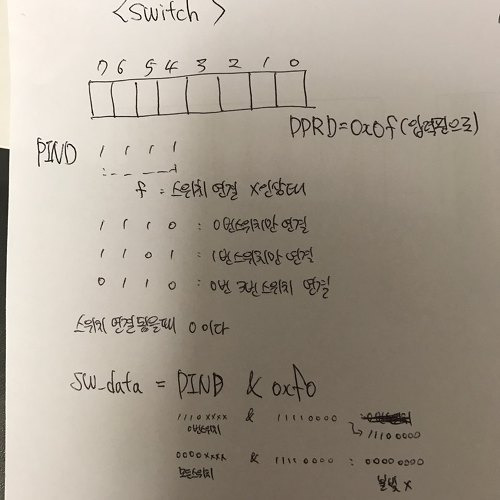 <Switch>
7 6 5 4 3 2 1 0
DDRD=0x0f (입력핀으로)
PIND 1 1 1 1
f : 스위치 연결 X인상태
1 1 1 0 : 0번스위치만 연결
1 1 0 1 : 1번스위치만 연결
0 1 1 0 : 0번 3번스위치 연결
스위치 연결됬을때 0이다
SW_data = PIND & 0xf0
1110xxxx & 11110000
0번스위치 ↳ 11100000
0000xxxx & 11110000 : 00000000
모든스위치 불빛 X